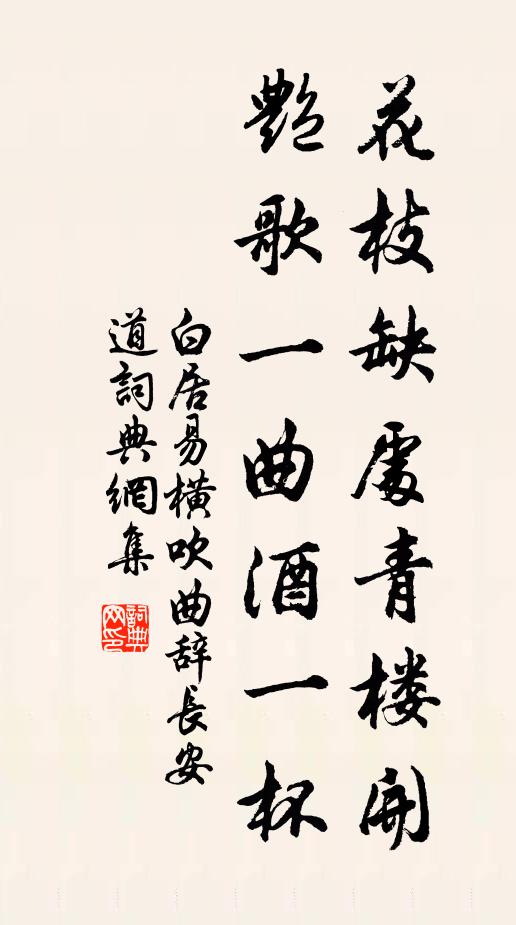 花枝缺處青楼開
艷歌一曲酒一杯
白居易橫吹曲辞長安
道詞典網集
詞典网印